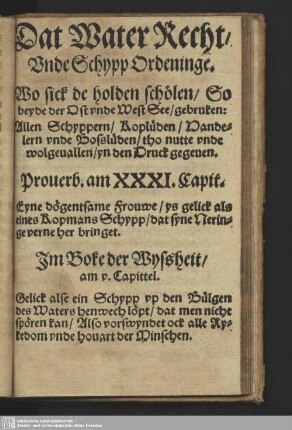 Dat Water Recht/
Vnde Schypp Ordeninge.
Wo sick de holden schölen/ So
beyde der Ost vnde West See/ gebruken:
Allen Schyppern/ Koplüden/ Wande-
lern vnde Boßlüden/ tho nutte vnde
wolgeuallen/ yn den Druck gegeuen.
Prouerb. am XXXI. Capit.
Eyne dögentsame Frouwe/ ys gelick als
eines Kopmans Schypp/ dat syne Nerin-
ge verne her bringet.
Im Boke der Wyßheit/
am v. Capittel.
Gelick alse ein Schypp vp den Bülgen
des Waters henwech löpt/ dat men nicht
spören kan/ Also vorswyndet ock alle Ry-
kedom vnde houart der Minschen.